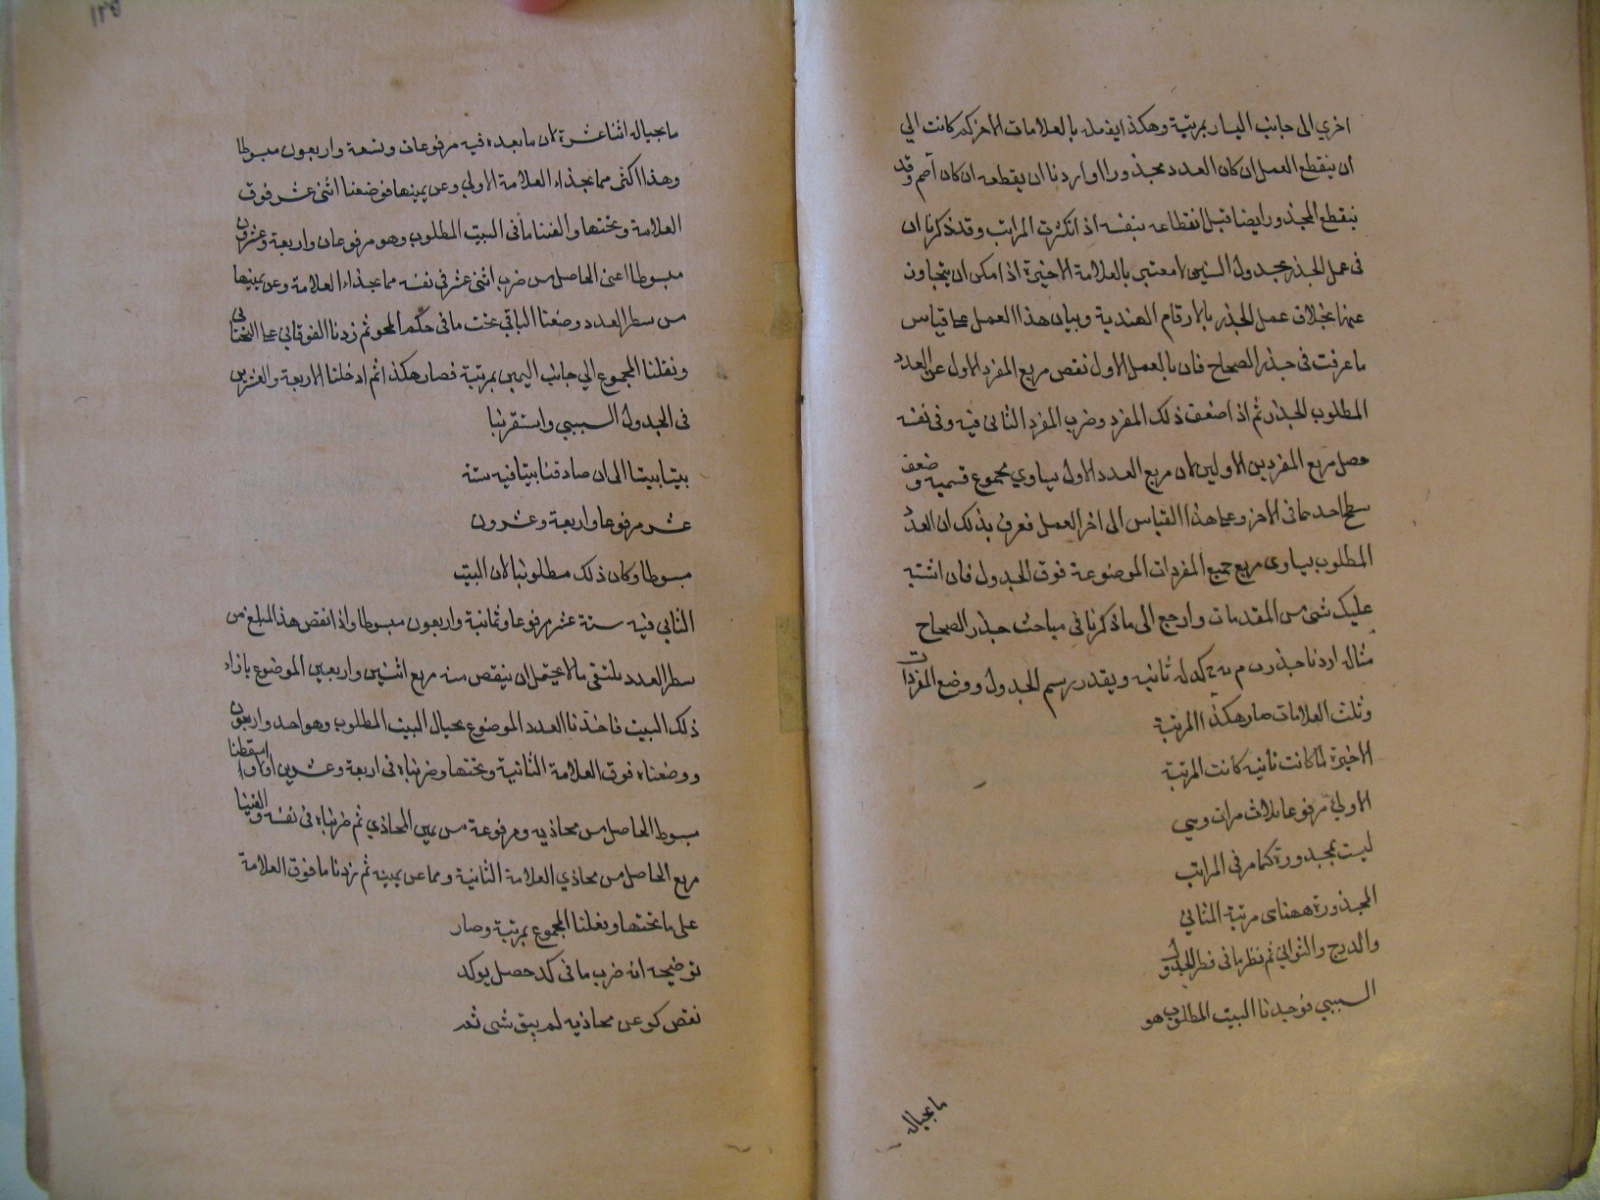 اخري الى جانب اليسار بمرتبة وهكذا يفعل بالعلامات الاخر كم كانت الي
ان ينقطع العمل ان كان العدد مجذورا او اردنا ان يقطعه ان كان أصم وقد
ينقطع المجذور ايضا قبل انقطاعه بنفسه اذ انكثرت المراتب وقد ذكرنا ان
فى عمل الجذر بجدول الستينى لا معتبر بالعلامة الاخيرة اذا مكن ان يتجاوز
عنها بخلاف عمل الجذر بالارقام الهندية وبيان هذا العمل على قياس
ما عرفت فى جذر الصحاح فان بالعمل الاول نقص مربع المفرد الاول عن العدد
المطلوب الجذر ثم اذا ضعف ذلك المفرد وضرب المفرد الثانى فيه وفى نفسه
حصل مربع المفردين الاولين لان مربع العدد الاول يساوي مجموع قسميه وضعف
سطح احدهما فى الاخر وعلى هذا القياس الى اخر العمل فعرف بذلك ان العدد
المطلوب يساوى مربع جميع المفردات الموضوعة فوق الجدول فان اشتبه
عليك شئ من المقدمات وارجع الى ما ذكرنا فى مباحث جذر الصحاح
مثاله اردنا جذر م كد له ثانيه وبقدر رسم الجدول ووضع المفردات
وثلث العلامات صار هكذا المرتبة
الاخيرة لما كانت ثانيه كانت المرتبة
الاولي مرفوعا ثلاث مرات وهي
ليست بمجذورة كما مر فى المراتب
المجذورة ههنا مرتبة المثاني
والدرج والثواني ثم نظرنا فى قطر الجدول
الستيني فوجدنا البيت المطلوب هو
ما بحياله
ما بحياله اثنا عشرة لان ما بعده فيه مرفوعان وتسعة واربعون مبسوطا
وهذا اكثر مما بحذاء العلامة الاولي وعن يمينها فوضعنا اثنى عشر فوق
العلامة وتحتها والقينا ما فى البيت المطلوب وهو مرفوعان واربعة وعشرون
مبسوطا اعنى الحاصل من ضرب اثنى عشر فى نفسه مما بحذاء العلامة وعن يمينها
من سطر العدد وضعنا الباقي تحت ما فى حكم المحو ثم زدنا الفوقاني على التحتاني
ونقلنا المجموع الي جانب اليمين بمرتبة فصار هكذا ثم ادخلنا الاربعة والعشرين
فى الجدول الستيني واستقرينا
بيتا بيتا الى ان صادفنا بيتا فيه ستة
عشر مرفوعا واربعة وعشرون
مبسوطا وكان ذلك مطلوبنا لان البيت
الثاني فيه ستة عشر مرفوعا وثمانية واربعون مبسوطا واذا نقص هذا المبلغ من
سطر العدد يلتقى ما لا يحتمل ان ينقص منه مربع اثنين واربعين الموضوع بازاء
ذلك البيت فاخذنا العدد الموضوع بحيال البيت المطلوب وهو احد واربعون
ووضعناه فوق العلامة الثانية وتحتها وضربناه فى اربعة وعشرين اولا واسقطنا
مبسوط الحاصل من محاذيه ومرفوعة من يمين المحاذي ثم ضربناه فى نفسه والقينا
مربع الحاصل من محاذي العلامة الثانية ومما عن يمينه ثم زدنا ما فوق العلامة
على ما تحتها ونقلنا المجموع بمرتبة وصار
توضيحه انه ضرب ما فى كد حصل يوكد
نقص كو عن محاذيه لم يبق شى ثم